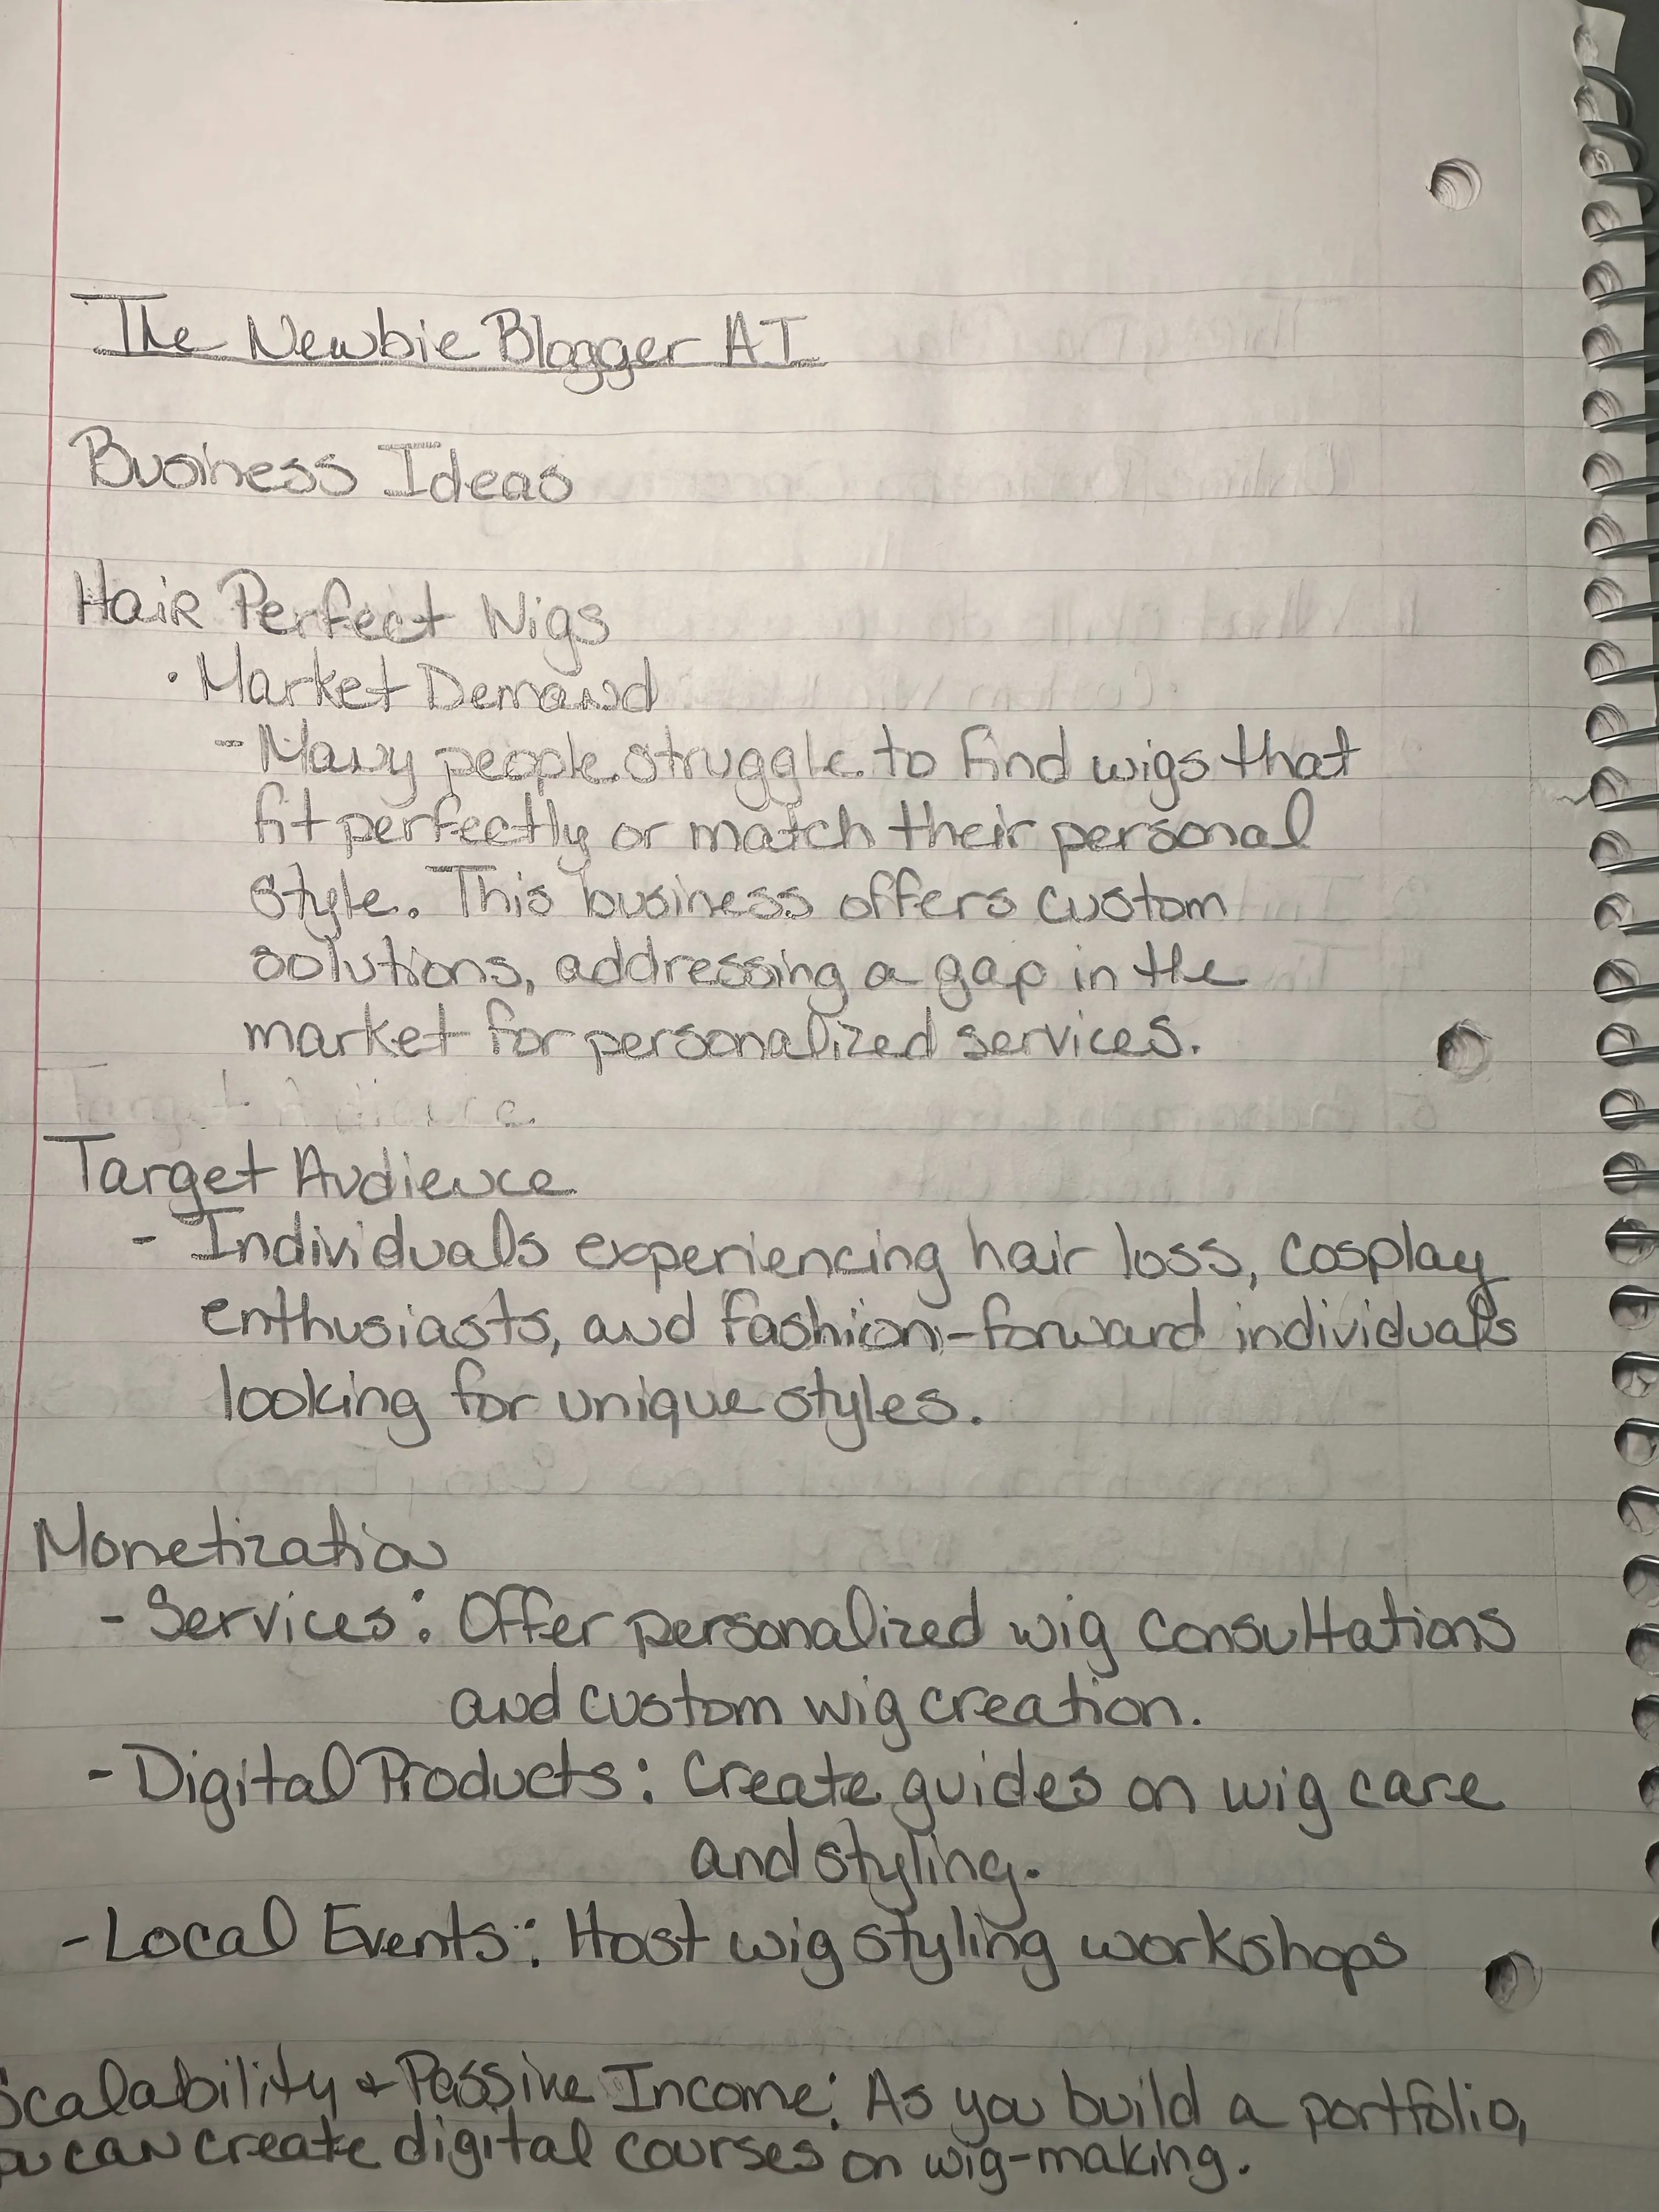 The Newbie Blogger AI
Business Ideas
Hair Perfect Wigs
• Market Demand
- Many people struggle to find wigs that
fit perfectly or match their personal
style. This business offers custom
solutions, addressing a gap in the
market for personalized services.
Target Audience
- Individuals experiencing hair loss, cosplay
enthusiasts, and fashion-forward individuals
looking for unique styles.
Monetization
- Services: Offer personalized wig consultations
and custom wig creation.
- Digital Products: Create guides on wig care
and styling.
- Local Events: Host wig styling workshops
Scalability + Passive Income: As you build a portfolio,
you can create digital courses on wig-making.